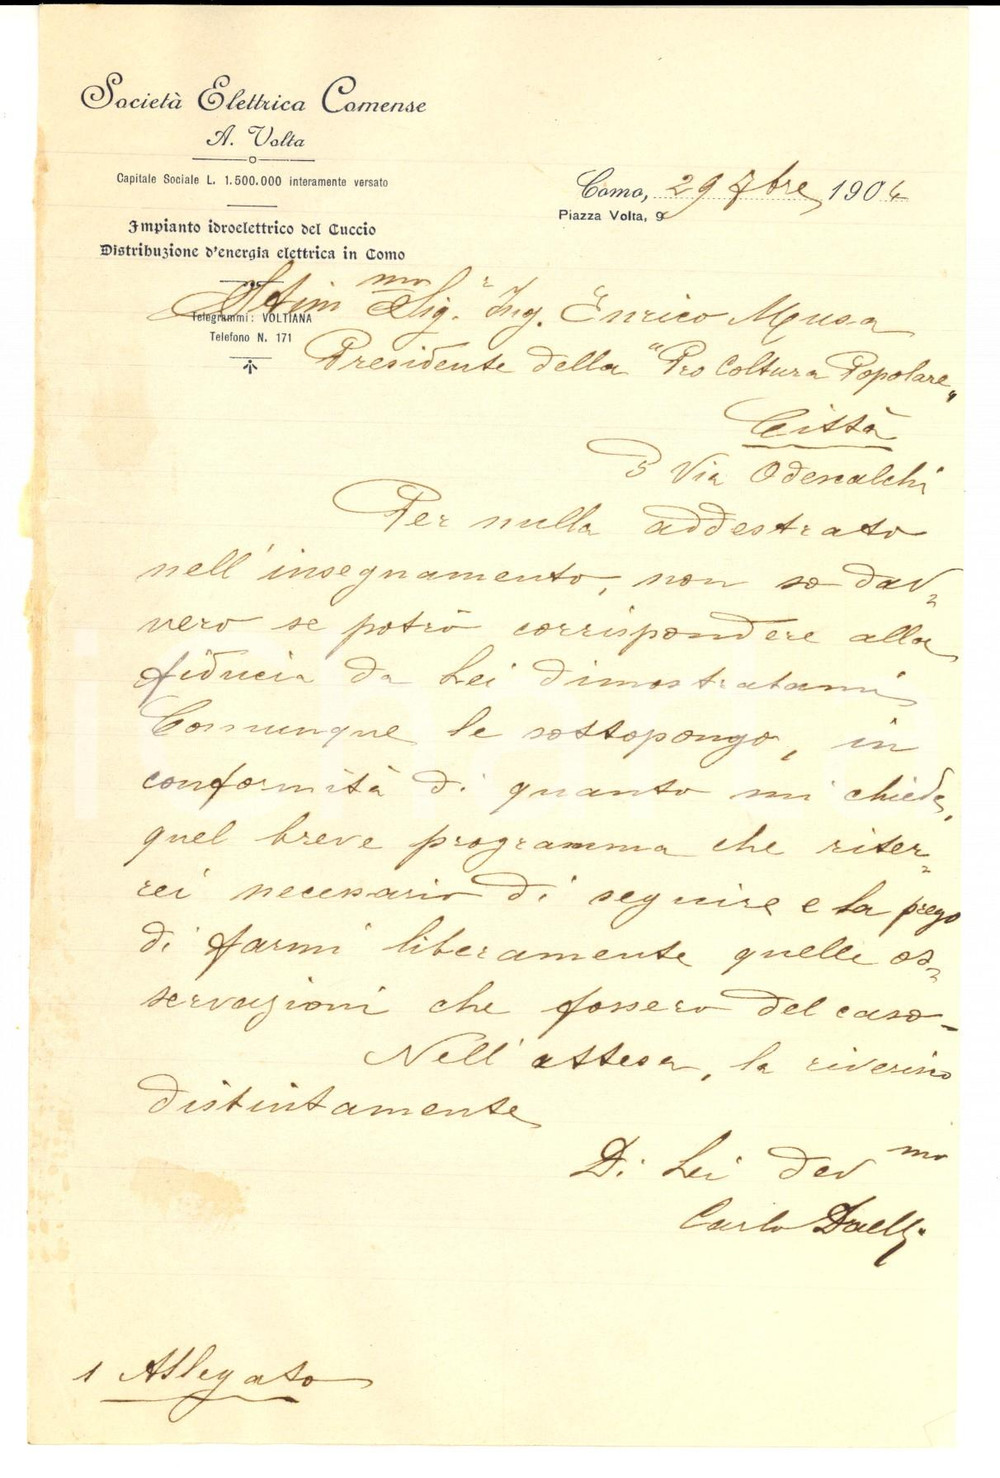 Società Elettrica Comense
A. Volta
Capitale Sociale L. 1.500.000 interamente versato
Impianto idroelettrico del Cuccio
Distribuzione d'energia elettrica in Como
Telegrammi: VOLTIANA
Telefono N. 171
Como, 29 7bre 1904
Piazza Volta, 9
Ill.mo Sig.r Ing. Enrico Musa
Presidente della "Pro Coltura Popolare"
Città
5 Via Odescalchi
Per nulla addestrato
nell'insegnamento, non so dav=
vero se potrò corrispondere alla
fiducia da Lei dimostratami
Comunque le sottopongo, in
conformità di quanto mi chiede,
quel breve programma che riter=
rei necessario di seguire e la prego
di farmi liberamente quelle os=
servazioni che fossero del caso-
Nell'attesa, la riverisco
distintamente
Di Lei dev mo
Carlo
1 Allegato